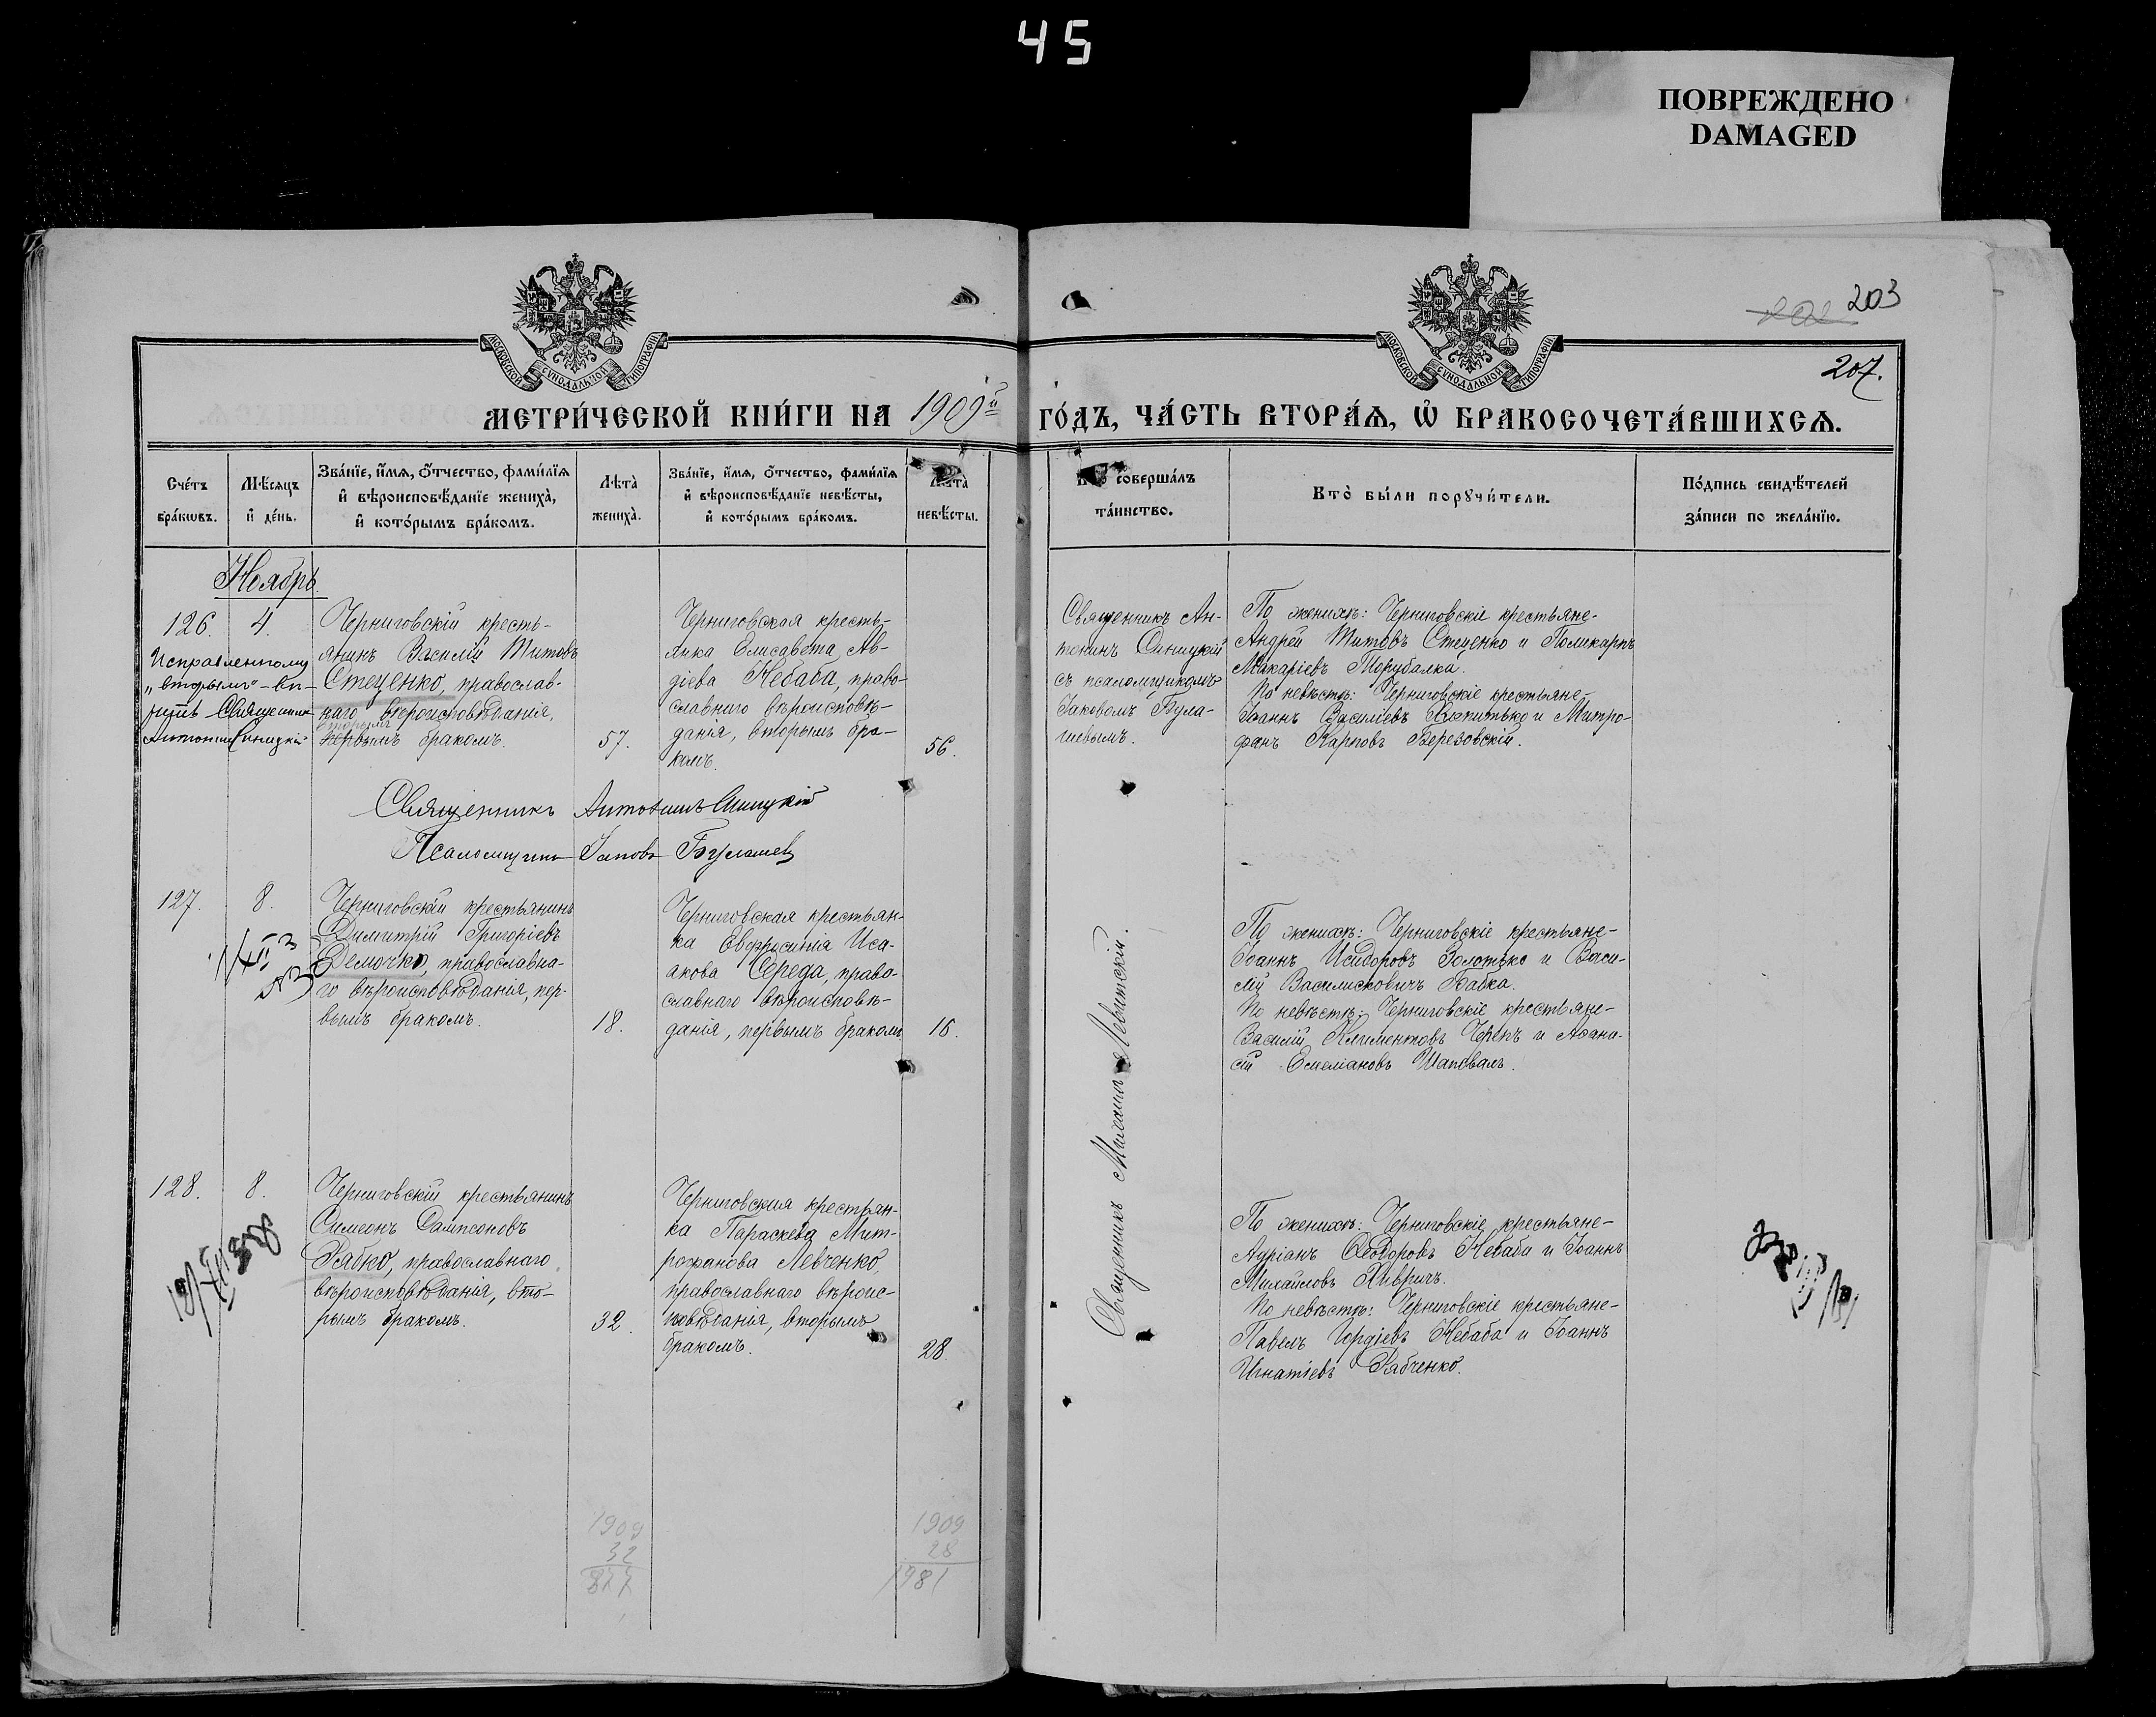 45
ПОВРЕЖДЕНО
DAMAGED
МОСКОВСКОЙ СѴНОДАЛЬНОЙ ТИПОГРАФІИ
МОСКОВСКОЙ СѴНОДАЛЬНОЙ ТИПОГРАФІИ
203
207.
МЕТРИ́ЧЕСКОЙ КНИ́ГИ НА 1909й
ГО́ДЪ, ЧА́СТЬ ВТОРА́Ѧ, Ѡ҆ БРАКОСОЧЕТА́ВШИХСѦ.
Сче́тъ
бра́кѡвъ.
Мѣ́сяцъ
и҆ де́нь.
Зва́нїе, и҆́мя, ѻ҆́тчество, фами́лїя
и҆ вѣроисповѣ́данїе жениха̀,
и҆ кото́рымъ бра́комъ.
Лѣта̀
жениха̀.
Зва́нїе, и҆́мя, ѻ҆́тчество, фами́лїя
и҆ вѣроисповѣ́данїе невѣ́сты,
и҆ кото́рымъ бра́комъ.
Лѣта̀
невѣ́сты.
соверша́лъ
та́инство.
Кто̀ бы́ли порꙋчи́тели.
По́дпись свидѣ́телей
за́писи по жела́нїю.
Ноябрь.
126.
4.
Исправленному
„вторымъ"-вѣ-
рить Священникъ
Антонинъ Синицкій
Черниговскій кресть-
янинъ Василій Титовъ
Стеценко, православ-
наго вѣроисповѣданія,
вторымъ
первымъ бракомъ.
57.
Черниговская кресть-
янка Елисавета Ав-
діева Небаба, право-
славнаго вѣроисповѣ-
данія, вторымъ бра-
комъ.
56.
Священникъ Ан-
тонинъ Синицкій
съ псаломщикомъ
Іаковомъ Була-
шевымъ.
По женихѣ: Черниговскіе крестьяне-
Андрей Титовъ Стеценко и Поликарпъ
Макаріевъ
По невѣстѣ: Черниговскіе крестьяне-
Іоаннъ Василіевъ и Митро-
фанъ Карповъ Березовскій.
Священникъ Антонинъ Синицкій
Псаломщикъ Іаковъ Булашев
127.
8.
Черниговскій крестьянинъ
Димитрій Григоріевъ
Демочко, православна-
го вѣроисповѣданія, пер-
вымъ бракомъ.
18.
Черниговская крестьян-
ка Евфросинія Иса-
акова Середа, право-
славнаго вѣроисповѣ-
данія, первымъ бракомъ
16.
По женихѣ: Черниговскіе крестьяне-
Іоаннъ Исидоровъ Золотько и Васи-
лій Василисковичъ Бабка.
По невѣстѣ: Черниговскіе крестьяне-
Василій Климентовъ Черепъ и Аѳана-
сій Емеліановъ Шаповалъ.
Священникъ Михаилъ Левитскій.
128.
8.
Черниговскій крестьянинъ
Симеонъ Сампсоновъ
Рябко, православнаго
вѣроисповѣданія, вто-
рымъ бракомъ.
32.
Черниговская крестьян-
ка Параскева Мит-
рофанова Левченко,
православнаго вѣроис-
повѣданія, вторымъ
бракомъ.
28.
По женихѣ: Черниговскіе крестьяне-
Адріанъ Ѳеодоровъ Небаба и Іоаннъ
Михайловъ Хивричъ.
По невѣстѣ: Черниговскіе крестьяне-
Павелъ Гордіевъ Небаба и Іоаннъ
Игнатіевъ Рябченко.
1909
32
877
1909
28
1981